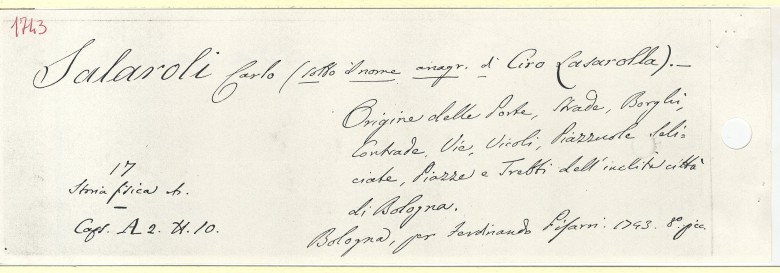 1743
Salaroli Carlo (sotto il nome anagr. di Ciro Lasarolla).—
Origine delle Porte, Strade, Borghi,
Contrade, Vie, Vicoli, Piazzuole Seli-
ciate, Piazze e Trebbi dell'inclita città
di Bologna.
Bologna, per Ferdinando Pisarri. 1743. 8° picc.
17
Storia
Caps. A 2. N. 10.